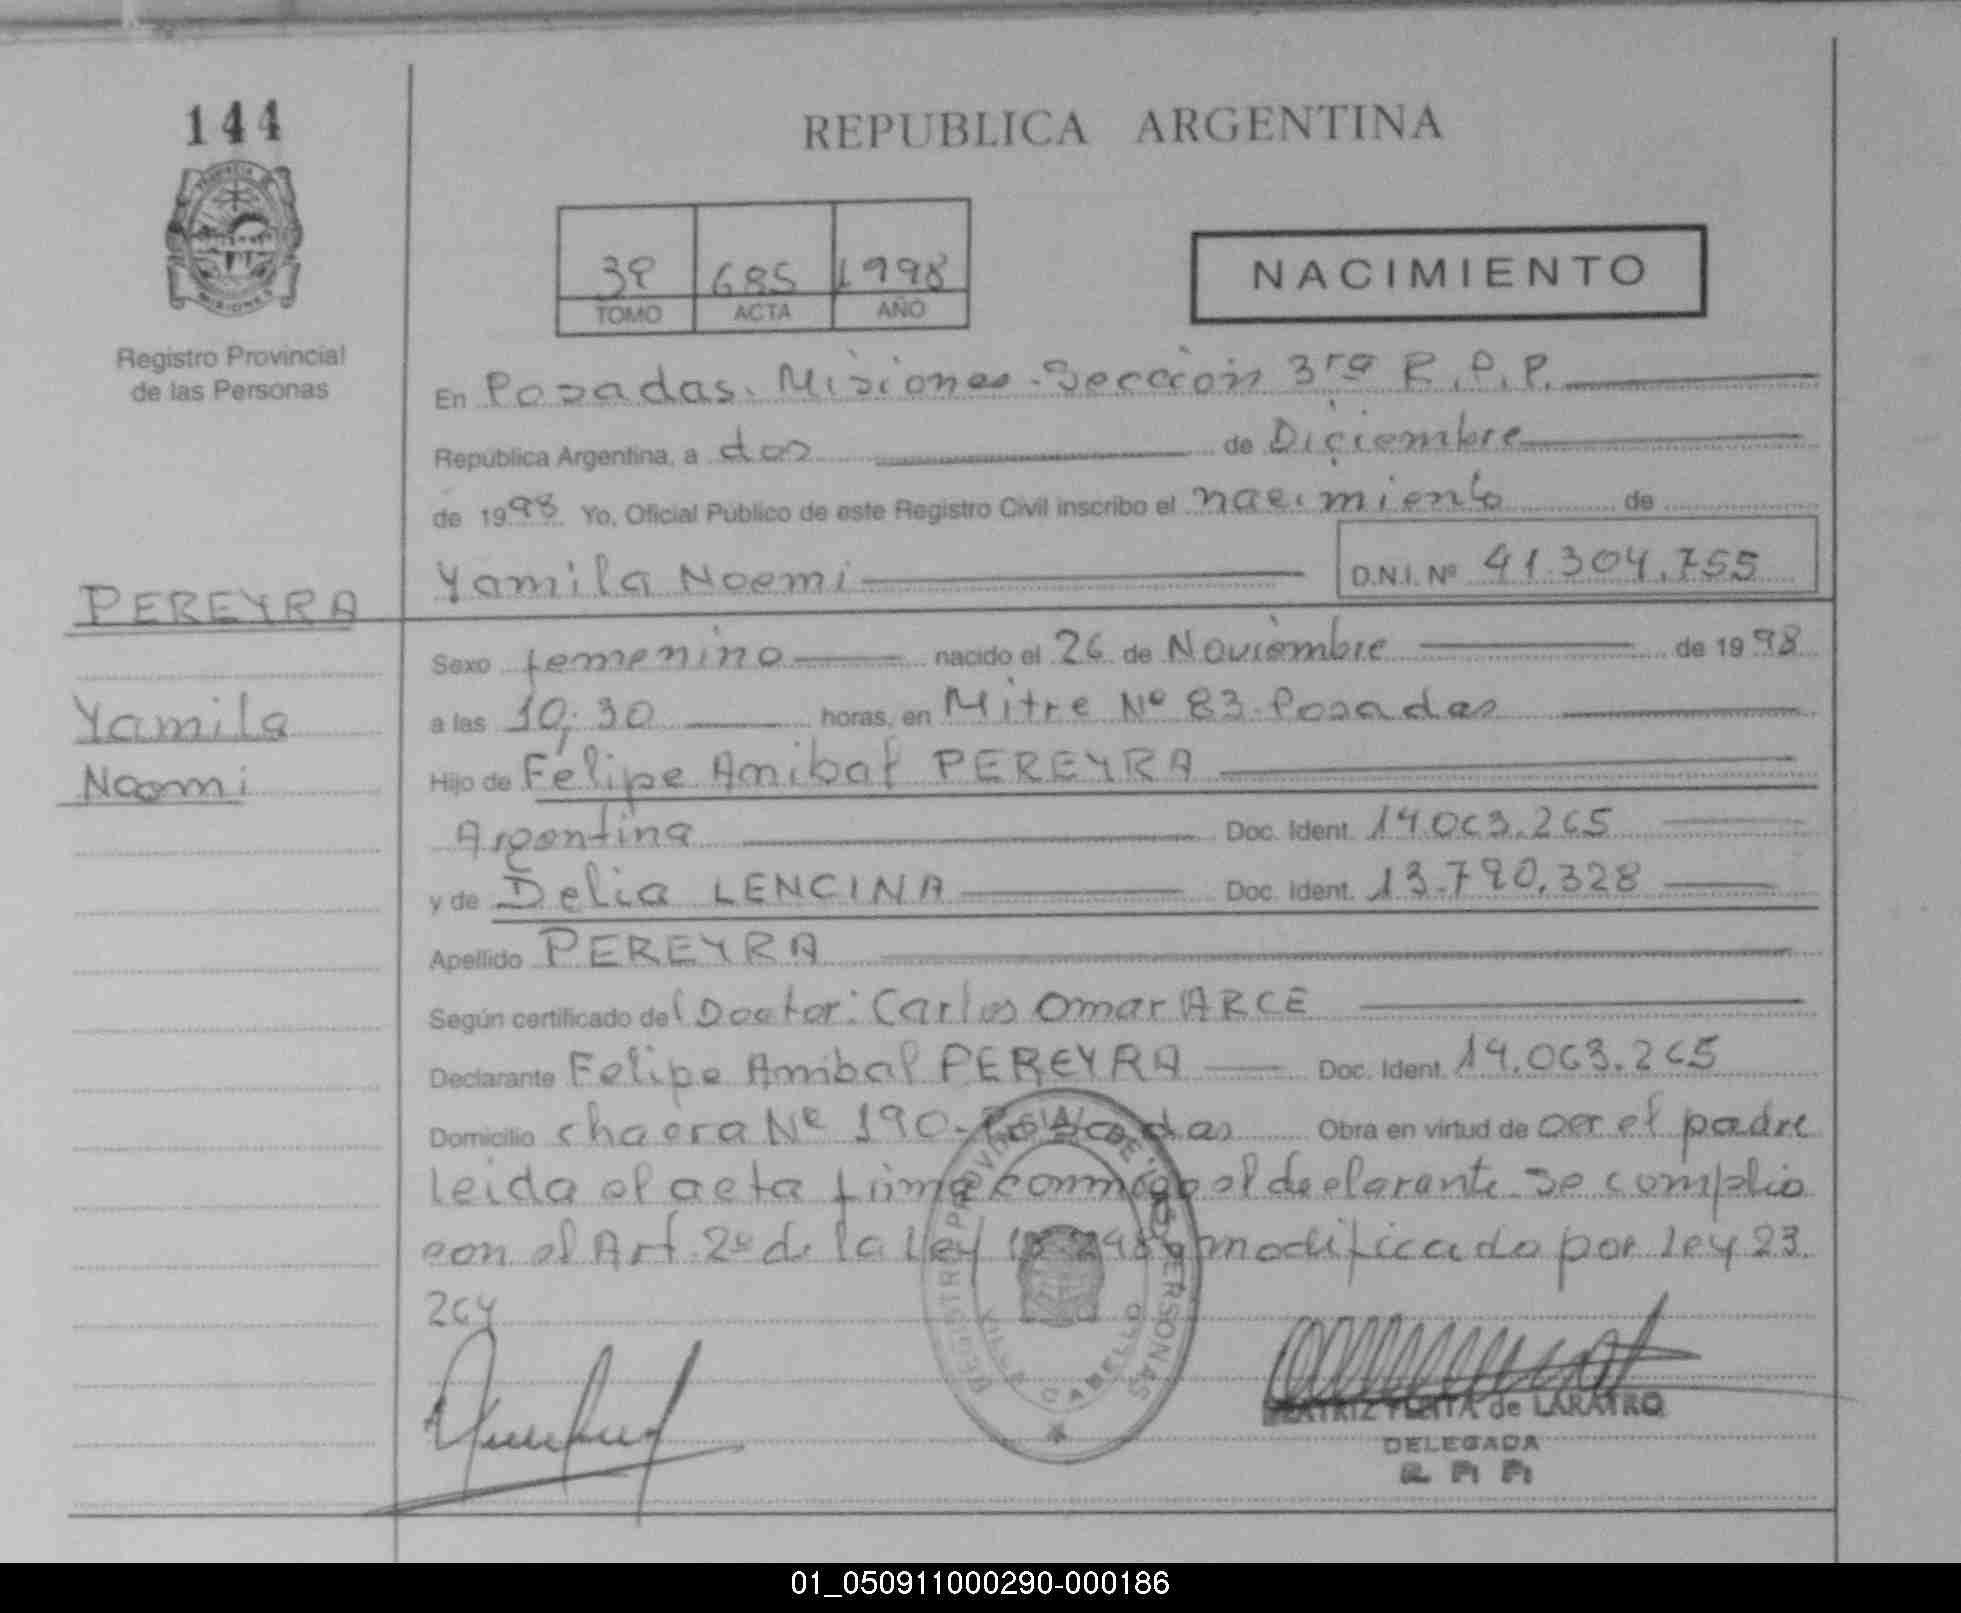 144
REPUBLICA ARGENTINA
3º 685 1998
TOMO ACTA AÑO
NACIMIENTO
Registro Provincial
de las Personas
En Posadas. Misiones - Sección 3ra R.P.P.
República Argentina, a dos de Diciembre
de 1998 Yo, Oficial Público de este Registro Civil inscribo el nacimiento de
Yamila Noemi D.N.I. Nº 41.304.755
PEREYRA
Yamila
Noemi
Sexo femenino nacido el 26 de Noviembre de 1998
a las 10:30 horas, en Mitre Nº 83. Posadas
Hijo de Felipe Anibal PEREYRA
Argentina Doc. Ident. 14.063.265
y de Delia LENCINA Doc. Ident. 13.790.328
Apellido PEREYRA
Según certificado del Doctor: Carlos Omar ARCE
Declarante Felipe Anibal PEREYRA Doc. Ident. 14.063.265
Domicilio chacra Nº 190 - Posadas Obra en virtud de ser el padre
leida el acta firma conmigo el declarante. Se complio
con el Art. 2º de la Ley 18.248 modificado por Ley 23.
264
REGISTRO PROVINCIAL DE LAS PERSONAS
VILLA CABELLO
BEATRIZ de LARATRO
DELEGADA
01_050911000290-000186